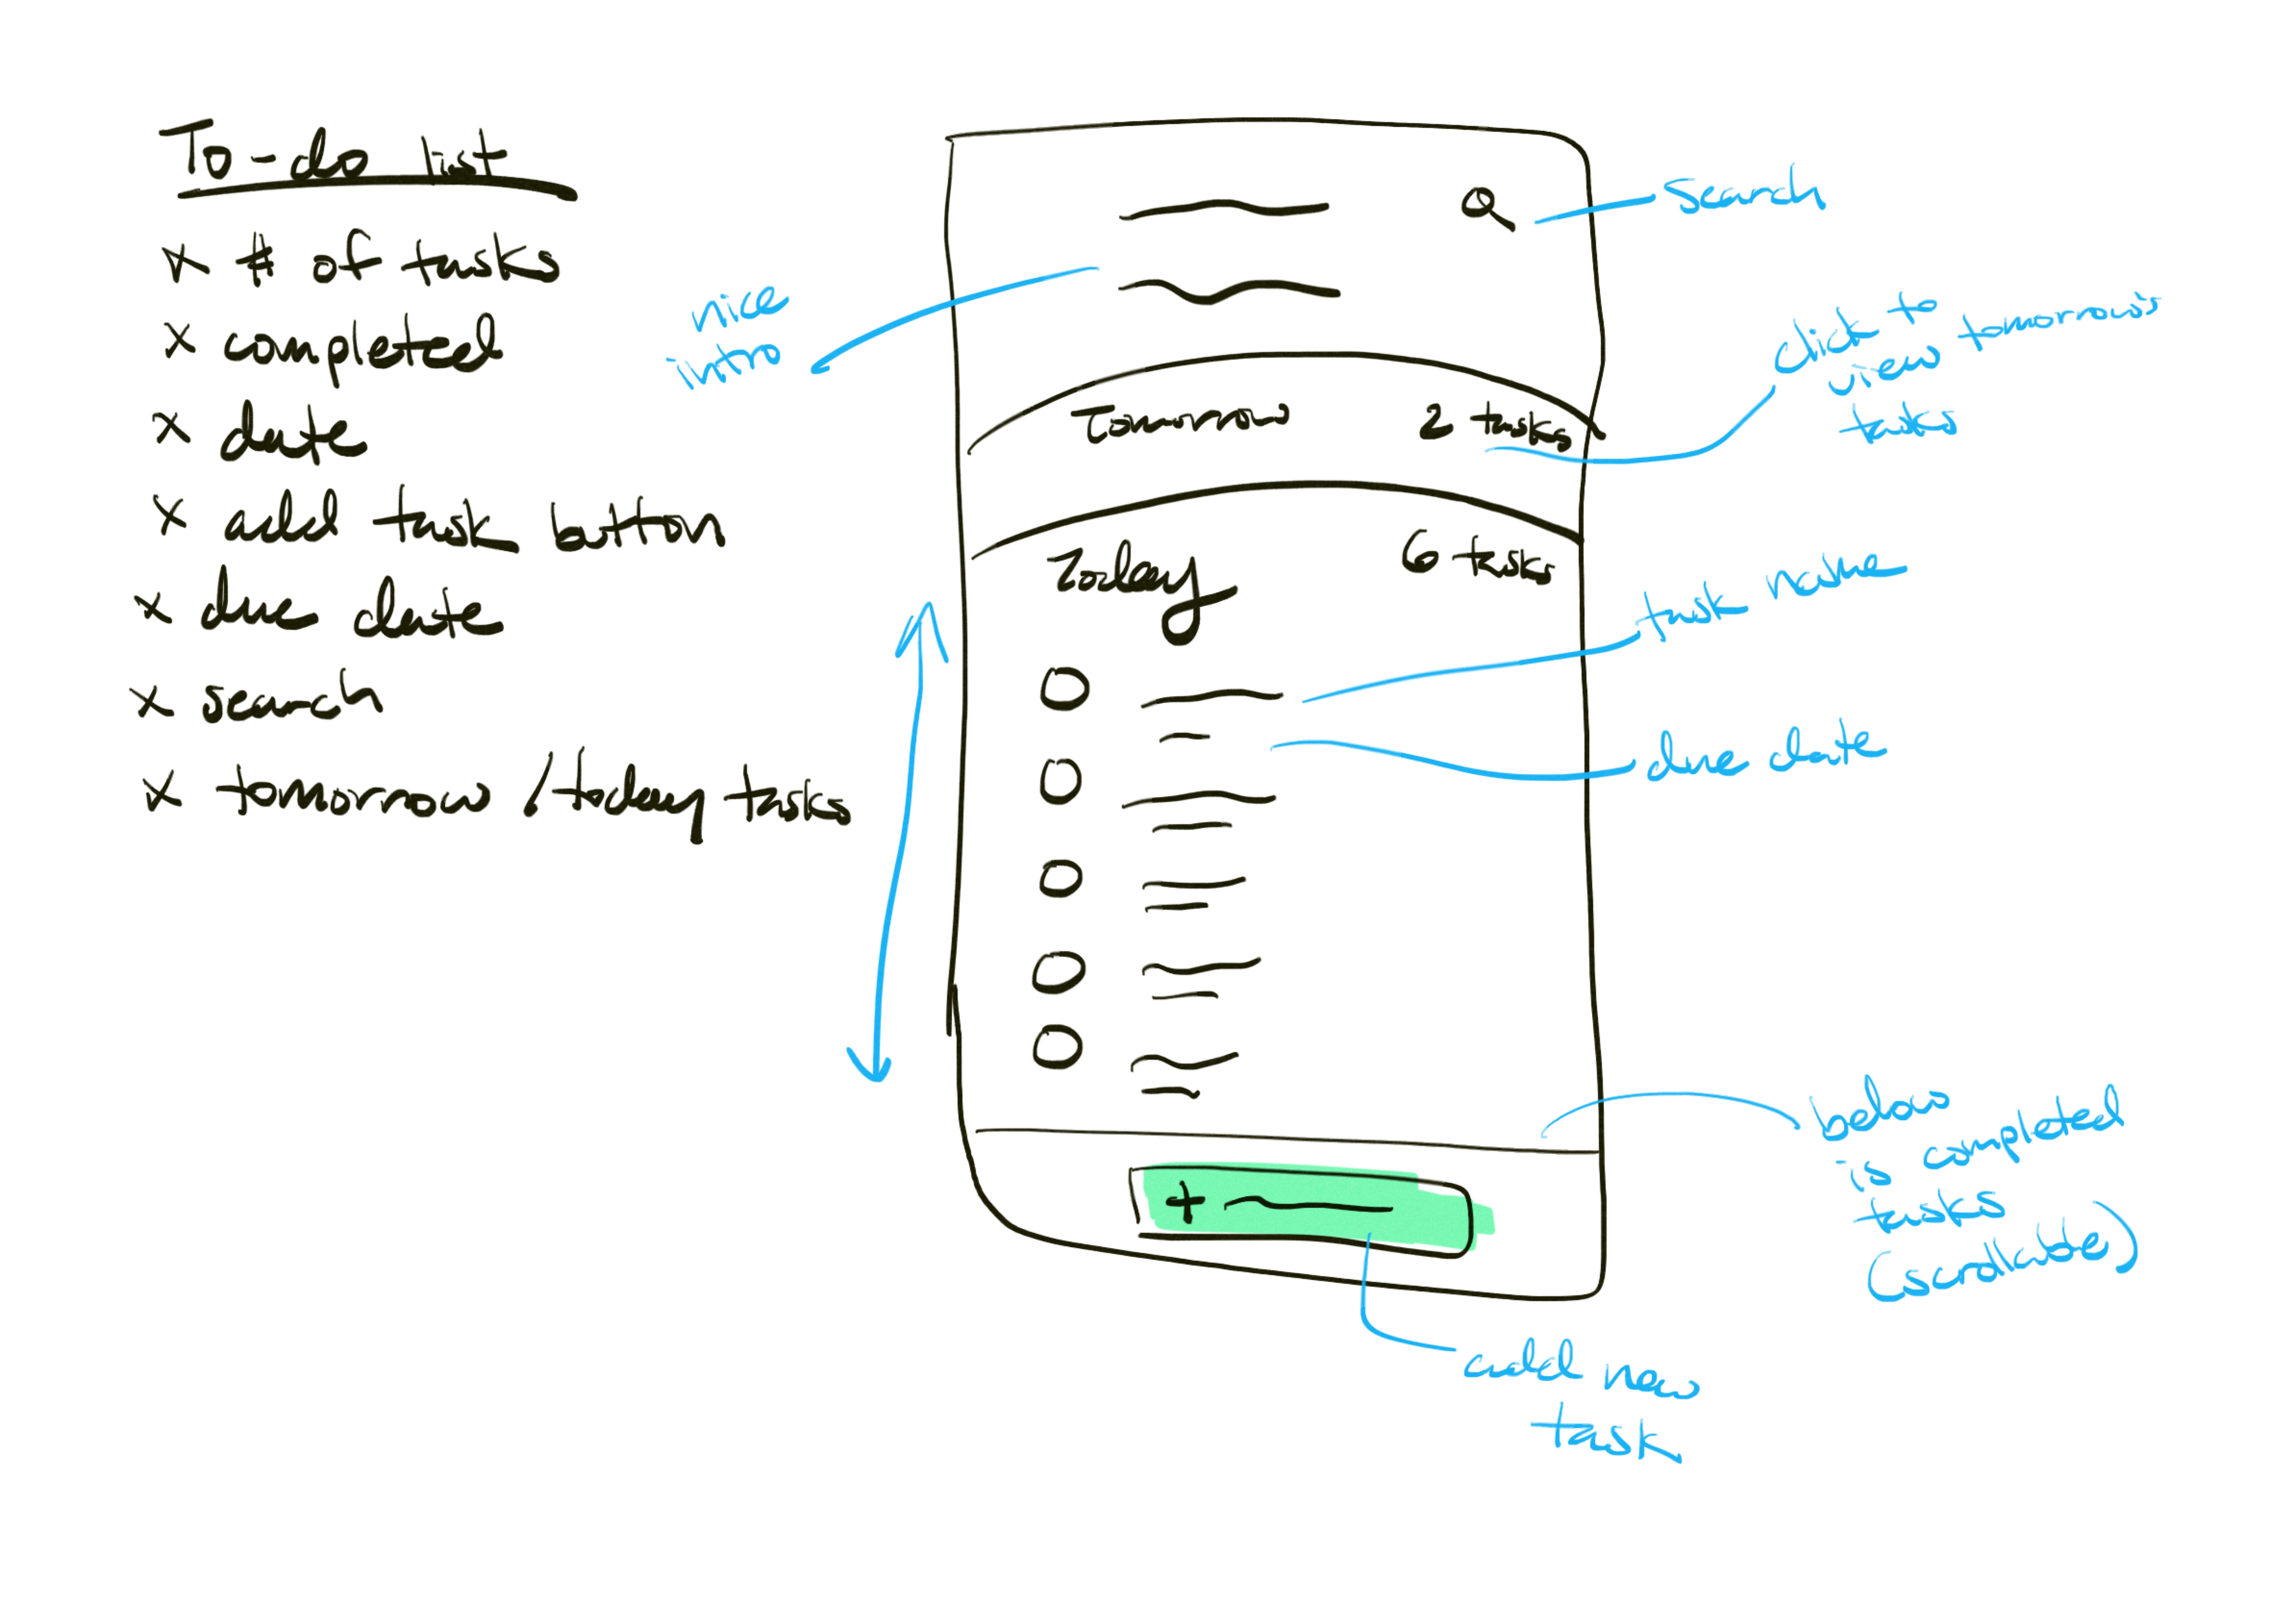 To-do list
x # of tasks
x completed
x date
x add task button
x due date
x search
x tomorrow / today tasks
search
nice
intro
click to
view tomorrow's
tasks
Tomorrow 2 tasks
Today 6 tasks
task name
due date
below
is completed
tasks
(scrollable)
+
add new
task